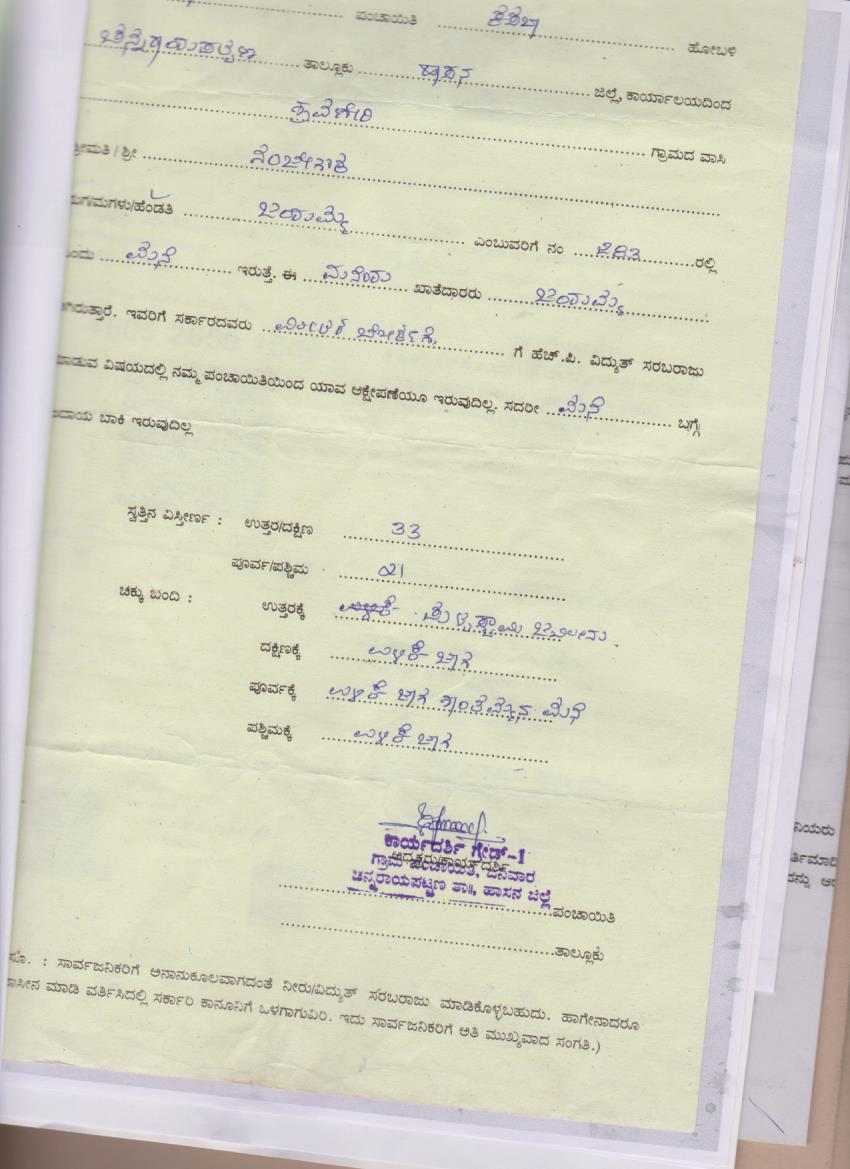 ಪಂಚಾಯಿತಿ ಕಸಬಾ ಹೋಬಳಿ
ಚನ್ನರಾಯಪಟ್ಟಣ ತಾಲ್ಲೂಕು ಹಾಸನ ಜಿಲ್ಲೆ, ಕಾರ್ಯಾಲಯದಿಂದ
ಗ್ರಾಮದ ವಾಸಿ
ಶ್ರೀಮತಿ / ಶ್ರೀ ನಂಜೇಗೌಡ
ಮಗ/ಮಗಳು/ಹೆಂಡತಿ ಜಯಮ್ಮ ಎಂಬುವರಿಗೆ ನಂ ರಲ್ಲಿ
ಒಂದು ಮನೆ ಇರುತ್ತೆ. ಈ ಮನೆಯ ಖಾತೆದಾರರು ಜಯಮ್ಮ
ಆಗಿರುತ್ತಾರೆ. ಇವರಿಗೆ ಸರ್ಕಾರದವರು ಗೆ ಹೆಚ್.ಪಿ. ವಿದ್ಯುತ್ ಸರಬರಾಜು
ಮಾಡುವ ವಿಷಯದಲ್ಲಿ ನಮ್ಮ ಪಂಚಾಯಿತಿಯಿಂದ ಯಾವ ಆಕ್ಷೇಪಣೆಯೂ ಇರುವುದಿಲ್ಲ. ಸದರೀ ಮನೆ ಬಗ್ಗೆ
ಕಂದಾಯ ಬಾಕಿ ಇರುವುದಿಲ್ಲ
ಸ್ವತ್ತಿನ ವಿಸ್ತೀರ್ಣ : ಉತ್ತರ/ದಕ್ಷಿಣ 33
ಪೂರ್ವ/ಪಶ್ಚಿಮ 21
ಚಕ್ಕು ಬಂದಿ : ಉತ್ತರಕ್ಕೆ ಜಮೀನು
ದಕ್ಷಿಣಕ್ಕೆ ಉಳಿಕೆ ಜಾಗ
ಪೂರ್ವಕ್ಕೆ ಉಳಿಕೆ ಜಾಗ ಶಾಂತಮ್ಮನ ಮನೆ
ಪಶ್ಚಿಮಕ್ಕೆ ಉಳಿಕೆ ಜಾಗ
ಕಾರ್ಯದರ್ಶಿ ಗ್ರೇಡ್-1
ಅಧ್ಯಕ್ಷರು/ಕಾರ್ಯದರ್ಶಿ
ಗ್ರಾಮ ಪಂಚಾಯಿತಿ, ಜನಿವಾರ
ಚನ್ನರಾಯಪಟ್ಟಣ ತಾ॥, ಹಾಸನ ಜಿಲ್ಲೆ
ಪಂಚಾಯಿತಿ
ತಾಲ್ಲೂಕು
ಸೂ. : ಸಾರ್ವಜನಿಕರಿಗೆ ಅನಾನುಕೂಲವಾಗದಂತೆ ನೀರು/ವಿದ್ಯುತ್ ಸರಬರಾಜು ಮಾಡಿಕೊಳ್ಳಬಹುದು. ಹಾಗೇನಾದರೂ
ಮಾಡಿ ವರ್ತಿಸಿದಲ್ಲಿ ಸರ್ಕಾರಿ ಕಾನೂನಿಗೆ ಒಳಗಾಗುವಿರಿ. ಇದು ಸಾರ್ವಜನಿಕರಿಗೆ ಅತಿ ಮುಖ್ಯವಾದ ಸಂಗತಿ.)